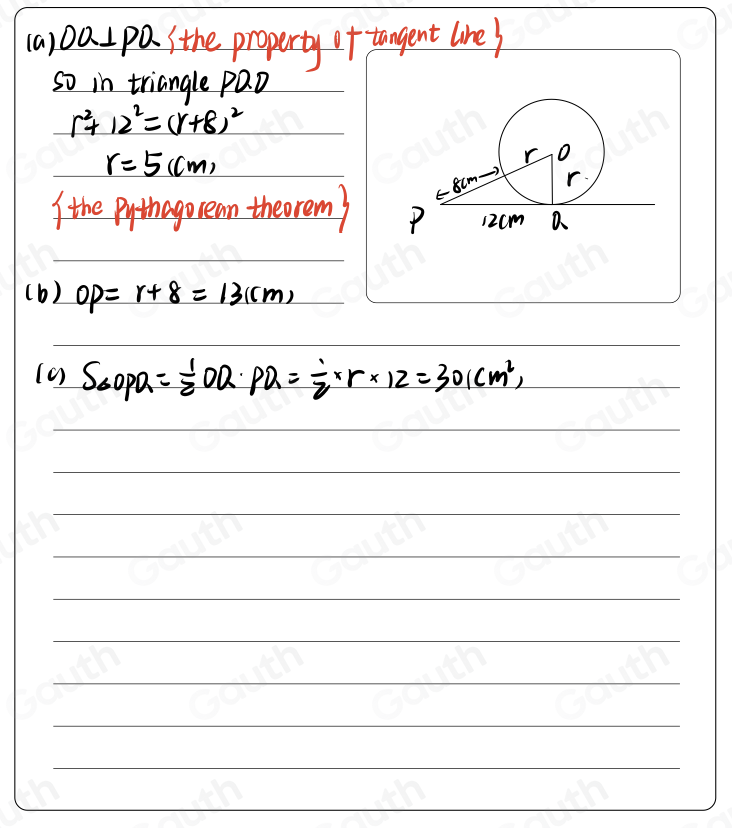 (a) OQ⊥PQ {the property of tangent line}
so in triangle PQO
r²+12²=(r+8)²
r=5(cm)
{the Pythagorean theorem}
(b) OP= r+8 = 13(cm)
(c) S△OPQ = 1/2 OQ·PQ = 1/2 × r × 12 = 30(cm²)
r O
←8cm→ r
P 12cm Q
Gauth